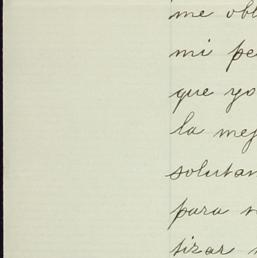 me obl
mi pe
que yo
la mej
solutan
para s
tizar